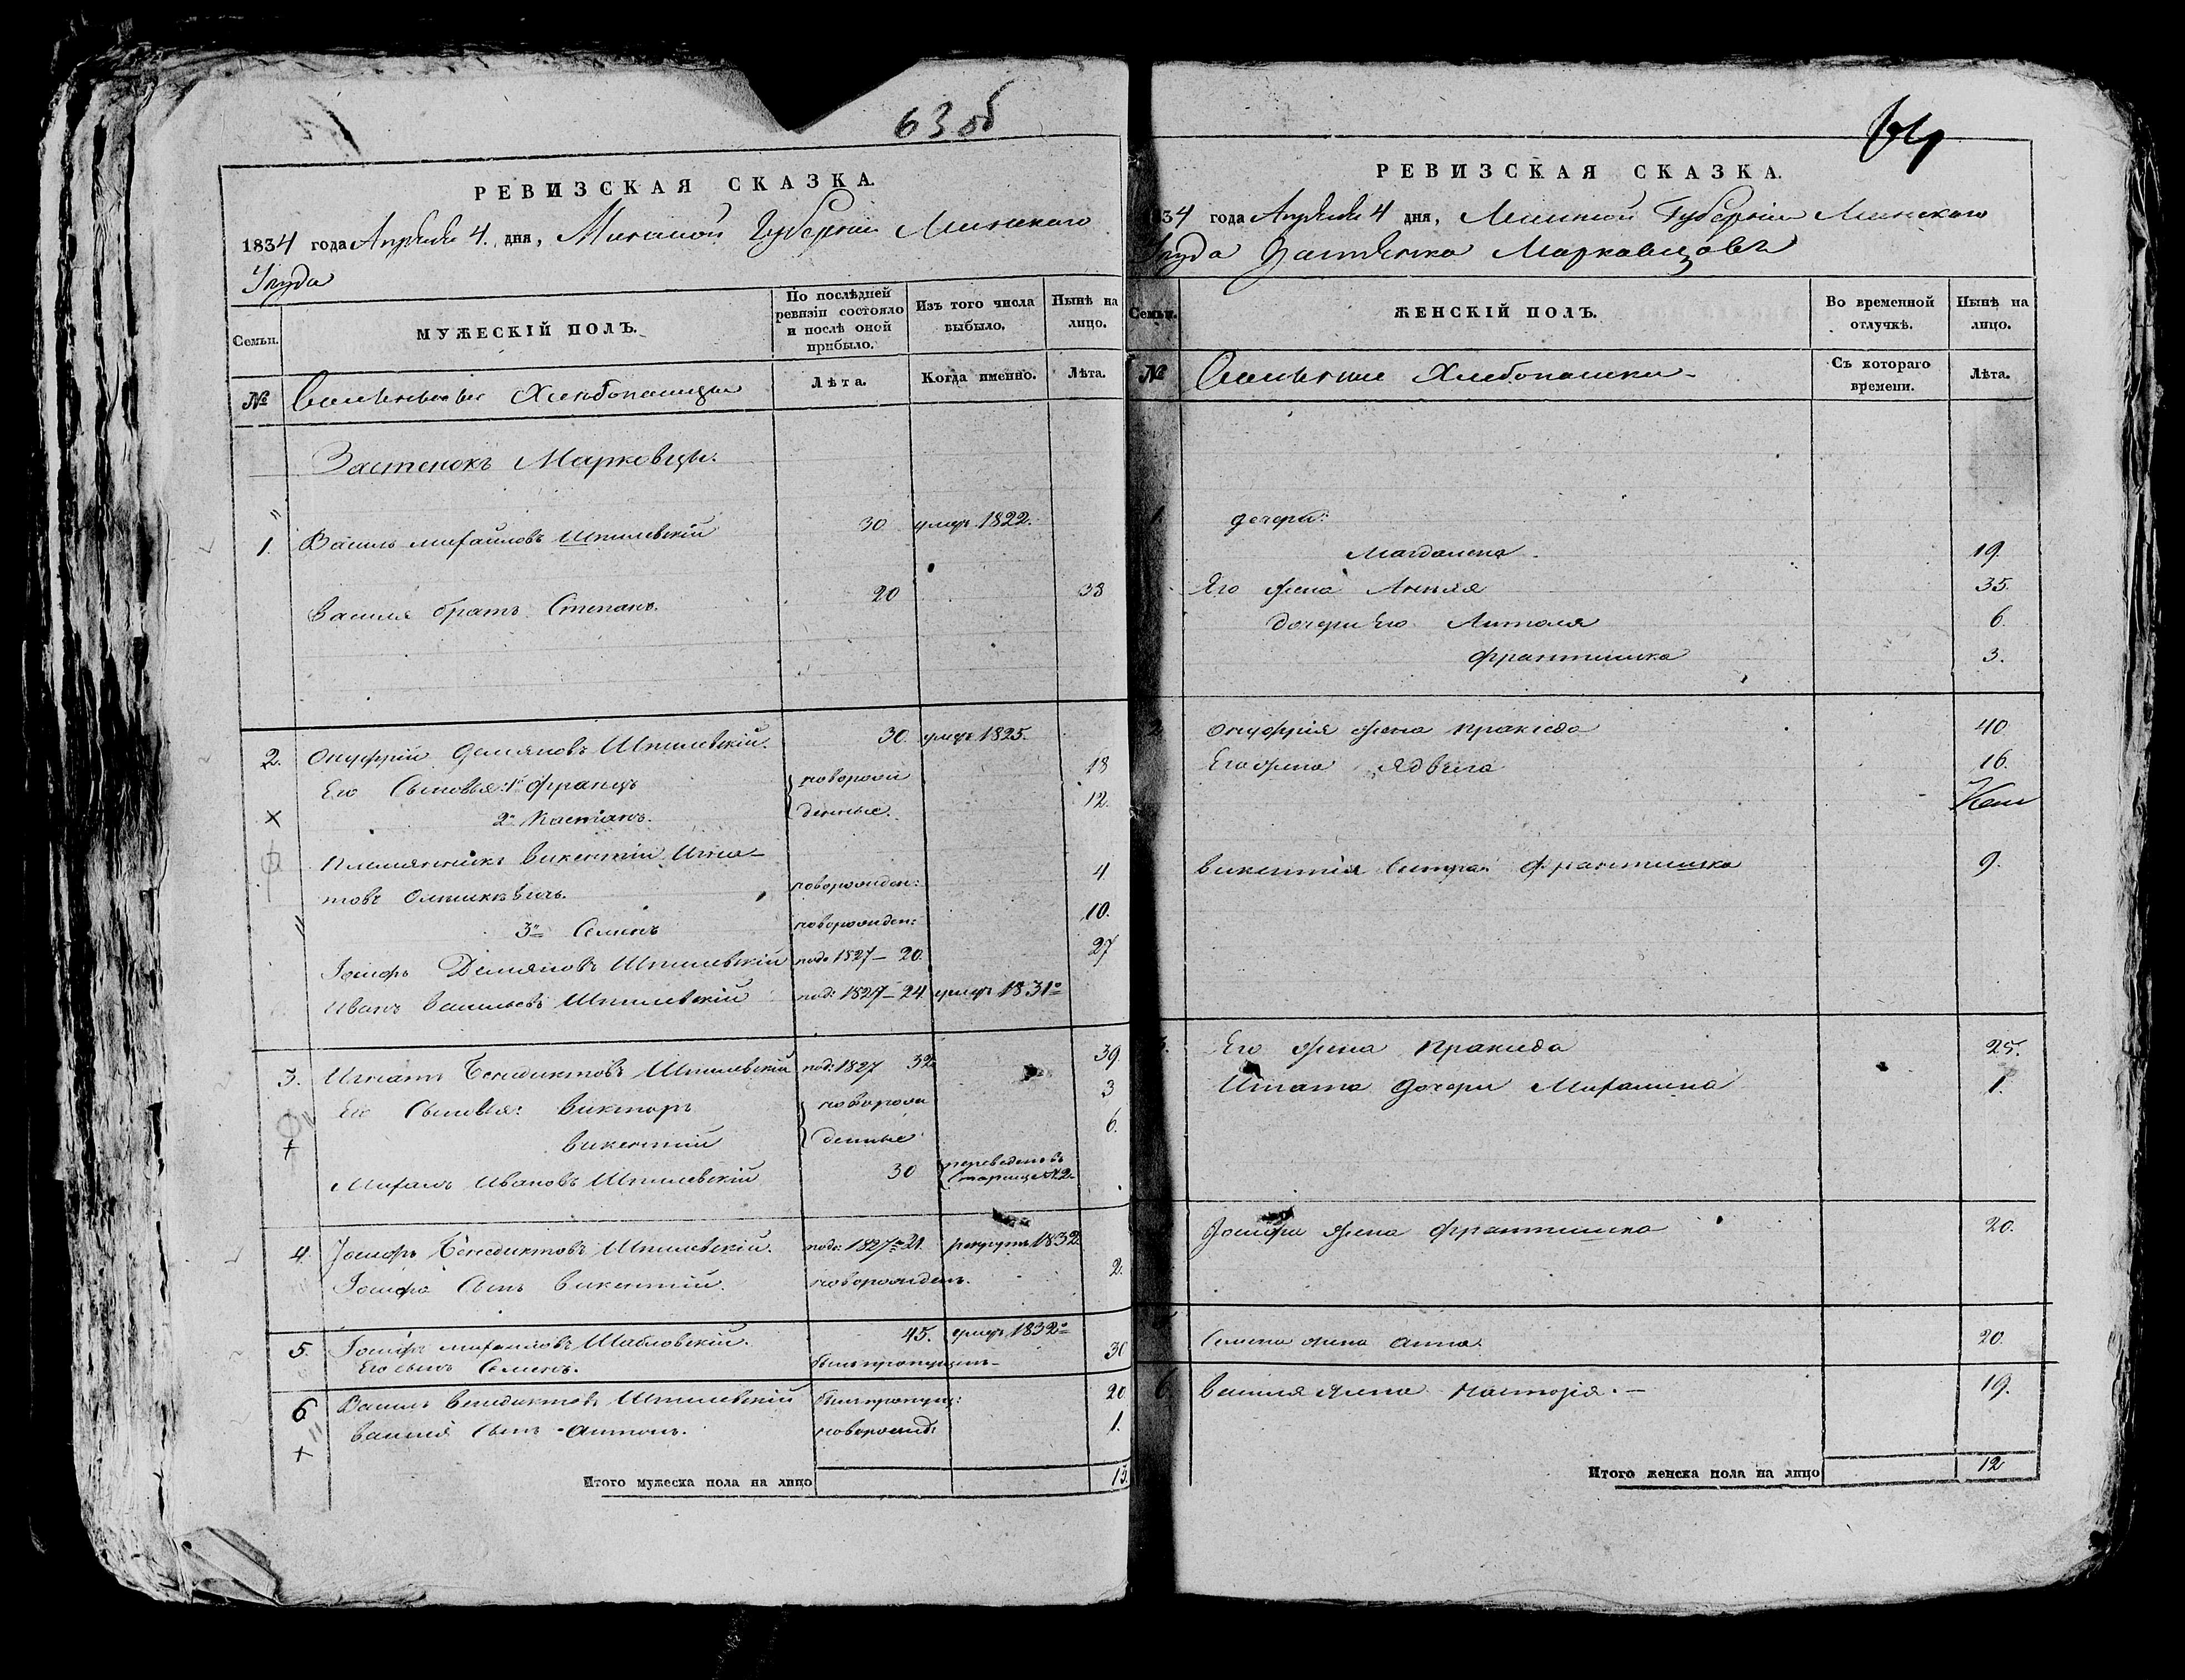 63 об
РЕВИЗСКАЯ СКАЗКА.
1834 года Апреля 4. дня, Минской Губернии Минского
Уезда
Семьи.
МУЖЕСКІЙ ПОЛЪ.
По послѣдней ревизіи состояло и послѣ оной прибыло.
Изъ того числа выбыло.
Нынѣ на лицо.
№
Хлебопашцы
Лѣта.
Когда именно.
Лѣта.
Застенокъ Марковцы.
1. Василь михайловъ Шпилевскій 30 умер 1822.
Василя братъ Степанъ. 20 38
2. Онуфрій Демяновъ Шпилевскій. 30. умер 1825.
Его Сыновья: 1й Францъ новорож 18
2й Кастанъ. денные. 12.
Племянникъ Викентій Игна-
товъ новорожден: 4
3й Семенъ новорожден: 10.
Іосифъ Демяновъ Шпилевскій под: 1827 – 20. 27
Иванъ Васильевъ Шпилевскій под: 1827 – 24. умер 1831о
3. Игнатъ Бенедиктовъ Шпилевскій под: 1827 32 39
Его Сыновья: Викторъ новорож 3
Викентій денные 6.
Михаилъ Ивановъ Шпилевскій 30 переведенъ въ
№ 2.
4. Іосифъ Бенедиктовъ Шпилевскій. под: 1827 21. рекрут 1832
Іосифа Сынъ Викентій. новорожден. 2.
5. Іосифъ михайловъ 45. умер 1832о
Его сынъ Семенъ. былъ пропущен– 30
6 Василь Бенедиктовъ Шпилевскій был пропущ: 20
Василія Сынъ Антонъ. новорожд: 1.
Итого мужеска пола на лицо
64
РЕВИЗСКАЯ СКАЗКА.
34 года Апреля 4 дня, Минской Губернии Минского
Уезда Застенка Марковцовъ
Семьи.
ЖЕНСКІЙ ПОЛЪ.
Во временной отлучкѣ.
Нынѣ на лицо.
№
Хлебопашки –
Съ котораго времени.
Лѣта.
1. дочери:
Магдалена 19.
Его жена Анеля 35.
дочери Его Антоля 6.
Франтишка 3.
2 Онуфрія жена Пракседа 40
Его жена Ядвига 16.
Викентія Сестра Франтишка 9.
Его жена Пракседа 25.
Игната дочери Михалина 1.
Іосифа жена Франтишка 20.
Семена жена Анна. 20.
6 Василя жена 19.
Итого женска пола на лицо 12